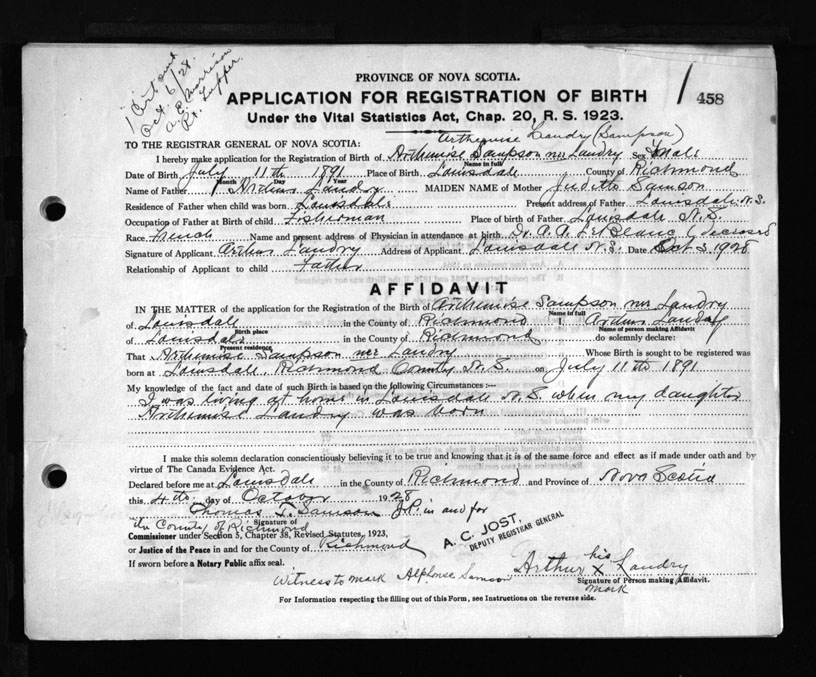 1 Cert sent
Oct. 6/28.
A. E. Morrison
PROVINCE OF NOVA SCOTIA.
APPLICATION FOR REGISTRATION OF BIRTH
458
Under the Vital Statistics Act, Chap. 20, R. S. 1923.
Arthemise Landry (Sampson)
TO THE REGISTRAR GENERAL OF NOVA SCOTIA:
I hereby make application for the Registration of Birth of Arthemise Sampson nee Landry Sex Female
Name in full
Date of Birth July 11th 1891 Place of Birth Louisdale County of Richmond
Month Day Year
Name of Father Landry MAIDEN NAME of Mother Judith Samson
Residence of Father when child was born Louisdale Present address of Father Louisdale N.S.
Occupation of Father at Birth of child Fisherman Place of birth of Father Louisdale N.S.
Race French Name and present address of Physician in attendance at birth Dr. LeBlanc (deceased
Signature of Applicant Arthur Landry Address of Applicant Louisdale N.S. Date Oct 3. 1928
Relationship of Applicant to child Father
AFFIDAVIT
IN THE MATTER of the application for the Registration of the Birth of Arthemise Sampson nee Landry
Name in full
of Louisdale in the County of Richmond I, Landry
Birth place Name of person making Affidavit
of Louisdale in the County of Richmond do solemnly declare:
Present residence
That Arthemise Sampson nee Landry Whose Birth is sought to be registered was
born at Louisdale, Richmond County N.S. on July 11th 1891
My knowledge of the fact and date of such Birth is based on the following Circumstances :—
I was living at home in Louisdale N.S. when my daughter
Arthemise Landry was born
I make this solemn declaration conscientiously believing it to be true and knowing that it is of the same force and effect as if made under oath and by
virtue of The Canada Evidence Act.
Declared before me at Louisdale in the County of Richmond and Province of Nova Scotia
this 4th day of October 1928
Thomas T. Samson J.P. in and for
the County of Richmond
Signature of
Commissioner under Section 5, Chapter 38, Revised Statutes, 1923,
or Justice of the Peace in and for the County of Richmond
A. C. JOST,
DEPUTY REGISTRAR GENERAL
If sworn before a Notary Public affix seal.
Arthur his X Landry
mark
Signature of Person making Affidavit.
Witness to mark Alphonse Samson
For Information respecting the filling out of this Form, see Instructions on the reverse side.